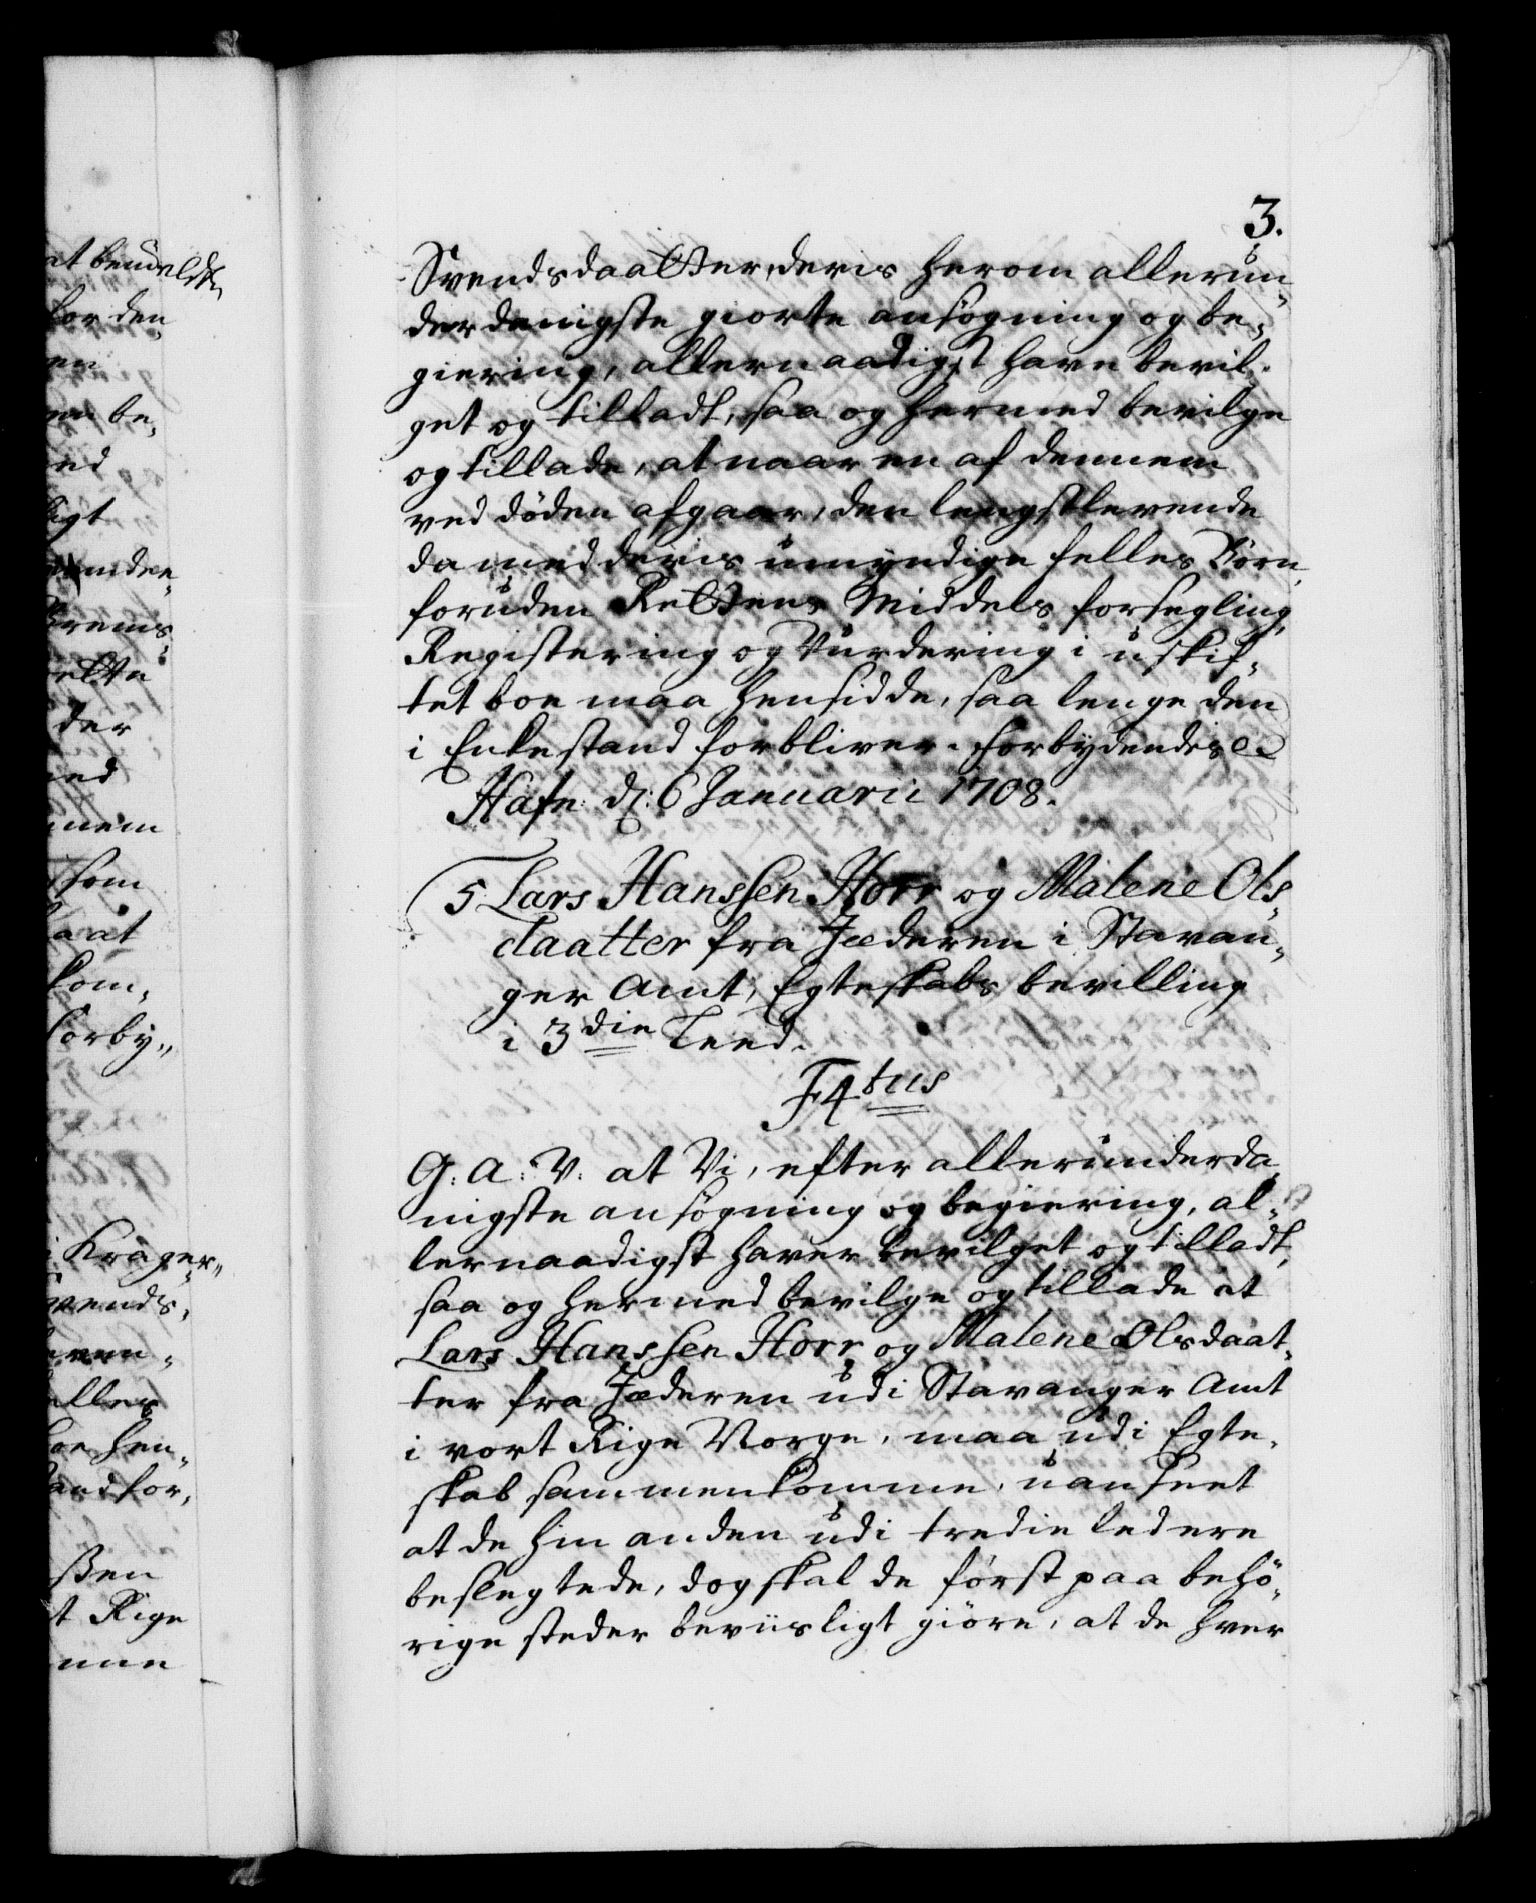 3.
Svendsdaatter, deris herom allerun„
der danigste giorte ansøgning og be„
giering, allernaadigst have bevil„
get og tilladt, saa og hermed bevilge
og tillade, at naar en af dennem
ved døden afgaar, den lengstlevende
da med deris umyndige felles Børn,
foruden Rettens Middels forsegling,
Registering og Vurdering i uskif„
tet boe maa hensidde, saa lenge den
i Enkestand forbliver. Forbydendes
Hafn: d: 6 Januarii 1708.
5 Lars Hanssen Horr og Malene Ols„
daatter fra Jæderen i Stavan„
ger Amt, Egteskabs bevilling
i 3die Leed.
F4tus
G: A: V: at Vi, efter allerunderda„
nigste ansøgning og begiering, al„
lernaadigst haver bevilget og tilladt,
saa og hermed bevilge og tillade at
Lars Hanssen Horr og Malene Olsdaat„
ter fra Jæderen udi Stavanger Amt
i vort Rige Norge, maa udi Egte„
skab sammenkomme, uanseet
at de hin anden udi tredie led ere
beslegtede, dog skal de først paa behö„
rige steder beviisligt giöre, at de hver
at bemeldte
for den
en
en be„
ed
ligt
der
ed
nem
som
aat
kom„
forby„
Krager„
vends„
aller
boe hen„
and for„
ßen
t Rige